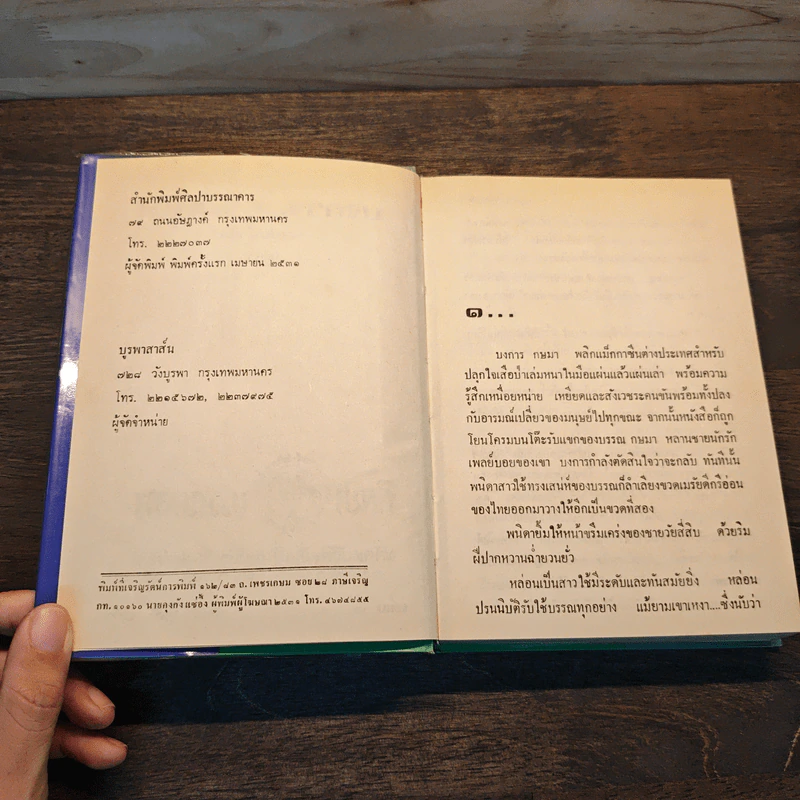 สำนักพิมพ์ศิลปาบรรณาคาร
๗๙ ถนนอัษฎางค์ กรุงเทพมหานคร
โทร. ๒๒๒๗๐๓๗
ผู้จัดพิมพ์ พิมพ์ครั้งแรก เมษายน ๒๕๓๑
บูรพาสาส์น
๗๒๘ วังบูรพา กรุงเทพมหานคร
โทร. ๒๒๑๕๖๗๒, ๒๒๓๗๙๗๕
ผู้จัดจำหน่าย
พิมพ์ที่เจริญรัตน์การพิมพ์ ๑๖๒/๘๓ ถ. เพชรเกษม ซอย ๒๘ ภาษีเจริญ
กท. ๑๐๑๖๐ นายกุงกัง แซ่อึ้ง ผู้พิมพ์ผู้โฆษณา ๒๕๓๑ โทร. ๔๖๗๔๘๕๕
๑...
บงการ กษมา พลิกแม็กกาซีนต่างประเทศสำหรับ
ปลุกใจเสือป่าเล่มหนาในมือแผ่นแล้วแผ่นเล่า พร้อมความ
รู้สึกเหนื่อยหน่าย เหยียดและสังเวชระคนขันพร้อมทั้งปลง
กับอารมณ์เปลี่ยวของมนุษย์ไปทุกขณะ จากนั้นหนังสือก็ถูก
โยนโครมบนโต๊ะรับแขกของบรรณ กษมา หลานชายนักรัก
เพลย์บอยของเขา บงการกำลังตัดสินใจว่าจะกลับ ทันทีนั้น
พนิดาสาวใช้ทรงเสน่ห์ของบรรณก็ลำเลียงขวดเมรัยดีกรีอ่อน
ของไทยออกมาวางให้อีกเป็นขวดที่สอง
พนิดายิ้มให้หน้าขรึมเคร่งของชายวัยสี่สิบ ด้วยริม
ฝีปากหวานฉ่ำยวนยั่ว
หล่อนเป็นสาวใช้มีระดับและทันสมัยยิ่ง หล่อน
ปรนนิบัติรับใช้บรรณทุกอย่าง แม้ยามเขาเหงา....ซึ่งนับว่า